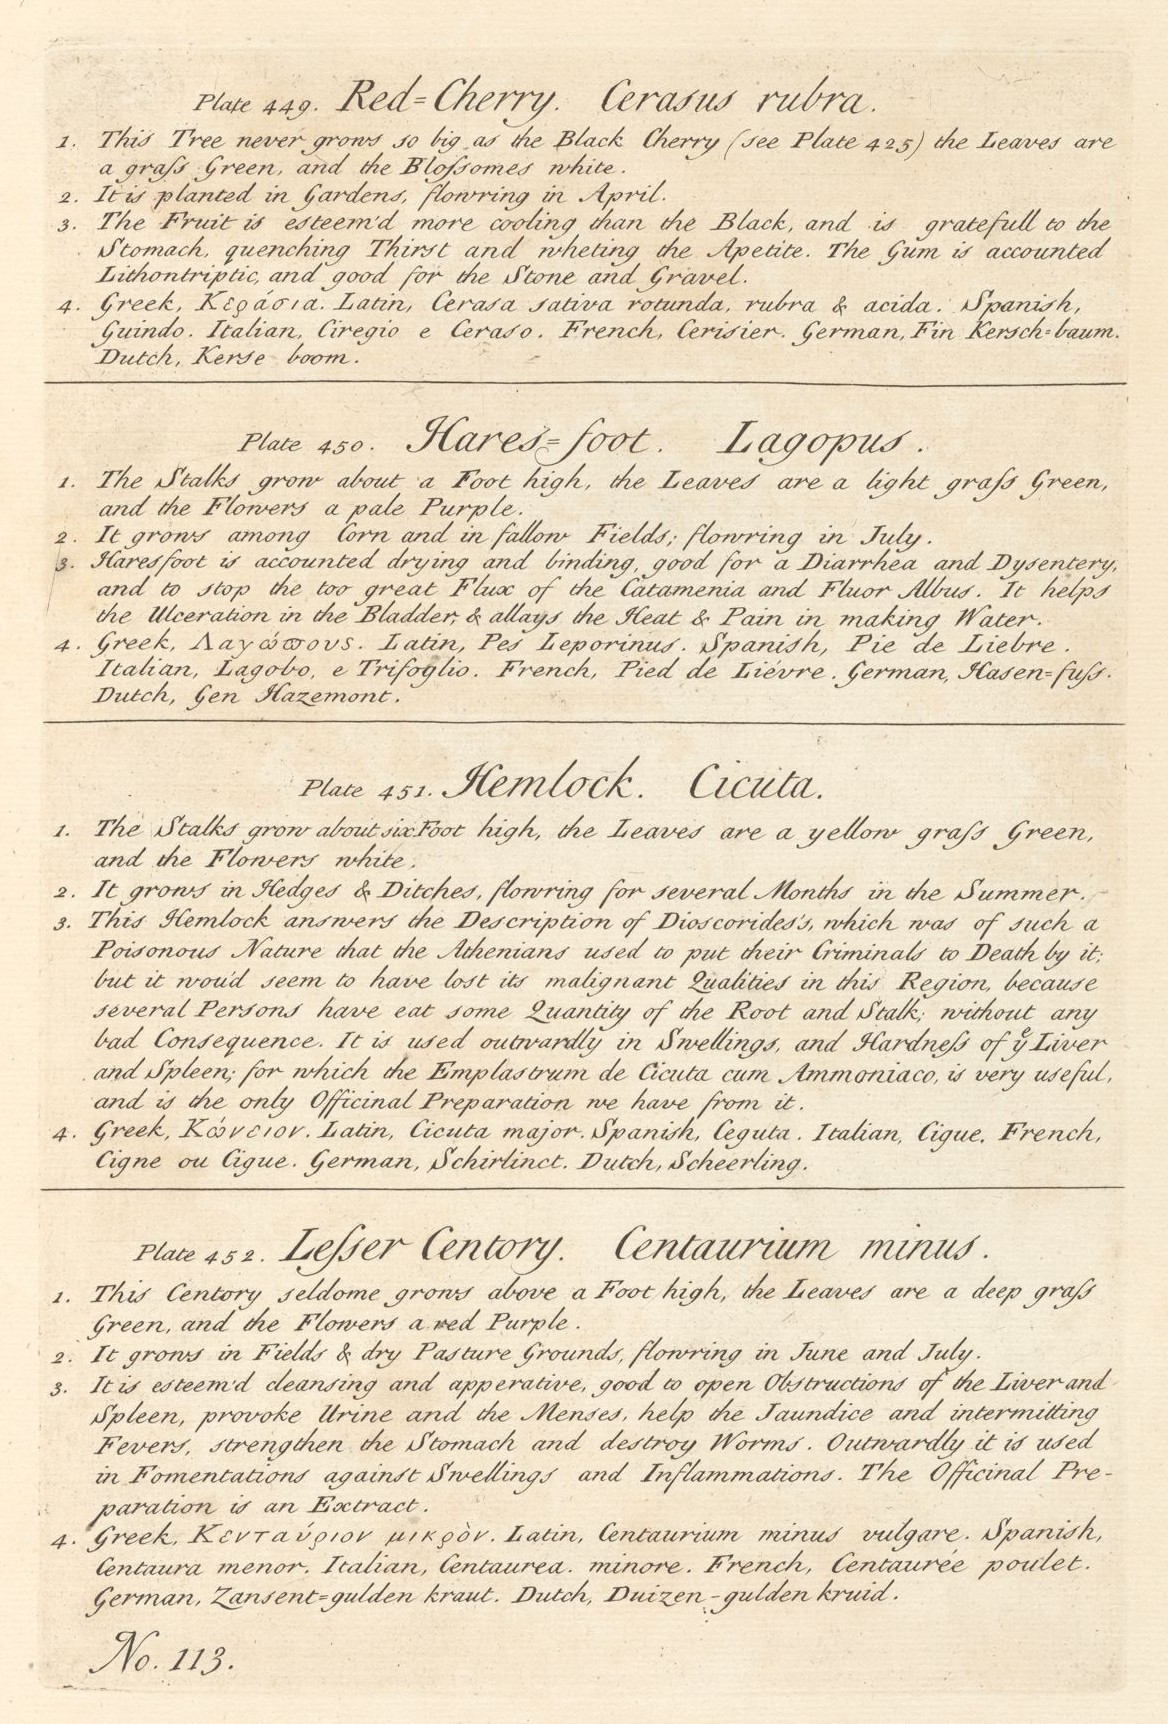 Plate 449. Red=Cherry. Cerasus rubra.
1. This Tree never grows so big as the Black Cherry (see Plate 425) the Leaves are
a graſs Green, and the Bloſsomes white.
2. It is planted in Gardens, flowring in April.
3. The Fruit is esteem'd more cooling than the Black, and is gratefull to the
Stomach, quenching Thirst and wheting the Apetite. The Gum is accounted
Lithontriptic, and good for the Stone and Gravel.
4. Greek, Κεράσια. Latin, Cerasa sativa rotunda, rubra & acida. Spanish,
Guindo. Italian, Ciregio e Ceraso. French, Cerisier. German, Fin Kersch=baum.
Dutch, Kerse boom.
Plate 450. Hares=foot. Lagopus.
1. The Stalks grow about a Foot high, the Leaves are a light graſs Green,
and the Flowers a pale Purple.
2. It grows among Corn and in fallow Fields; flowring in July.
3. Haresfoot is accounted drying and binding, good for a Diarrhea and Dysentery,
and to stop the too great Flux of the Catamenia and Fluor Albus. It helps
the Ulceration in the Bladder, & allays the Heat & Pain in making Water.
4. Greek, Λαγώϖους. Latin, Pes Leporinus. Spanish, Pie de Liebre.
Italian, Lagobo, e Trifoglio. French, Pied de Liévre. German, Hasen=fuſs.
Dutch, Gen Hazemont.
Plate 451. Hemlock. Cicuta.
1. The Stalks grow about six Foot high, the Leaves are a yellow graſs Green,
and the Flowers white.
2. It grows in Hedges & Ditches, flowring for several Months in the Summer.
3. This Hemlock answers the Description of Dioscorides's, which was of such a
Poisonous Nature that the Athenians used to put their Criminals to Death by it;
but it wou'd seem to have lost its malignant Qualities in this Region, because
several Persons have eat some Quantity of the Root and Stalk; without any
bad Consequence. It is used outwardly in Swellings, and Hardneſs of yͤ Liver
and Spleen; for which the Emplastrum de Cicuta cum Ammoniaco, is very useful,
and is the only Officinal Preparation we have from it.
4. Greek, Κώνειον. Latin, Cicuta major. Spanish, Ceguta. Italian, Cigue. French,
Cigne ou Cigue. German, Schirlinct. Dutch, Scheerling.
Plate 452. Leſser Centory. Centaurium minus.
1. This Centory seldome grows above a Foot high, the Leaves are a deep graſs
Green, and the Flowers a red Purple.
2. It grows in Fields & dry Pasture Grounds, flowring in June and July.
3. It is esteem'd cleansing and apperative, good to open Obstructions of the Liver and
Spleen, provoke Urine and the Menses, help the Jaundice and intermitting
Fevers, strengthen the Stomach and destroy Worms. Outwardly it is used
in Fomentations against Swellings and Inflammations. The Officinal Pre-
paration is an Extract.
4. Greek, Κενταύριον μικρὸν. Latin, Centaurium minus vulgare. Spanish,
Centaura menor. Italian, Centaurea. minore. French, Centaurée poulet.
German, Zansent=gulden kraut. Dutch, Duizen-gulden kruid.
No. 113.